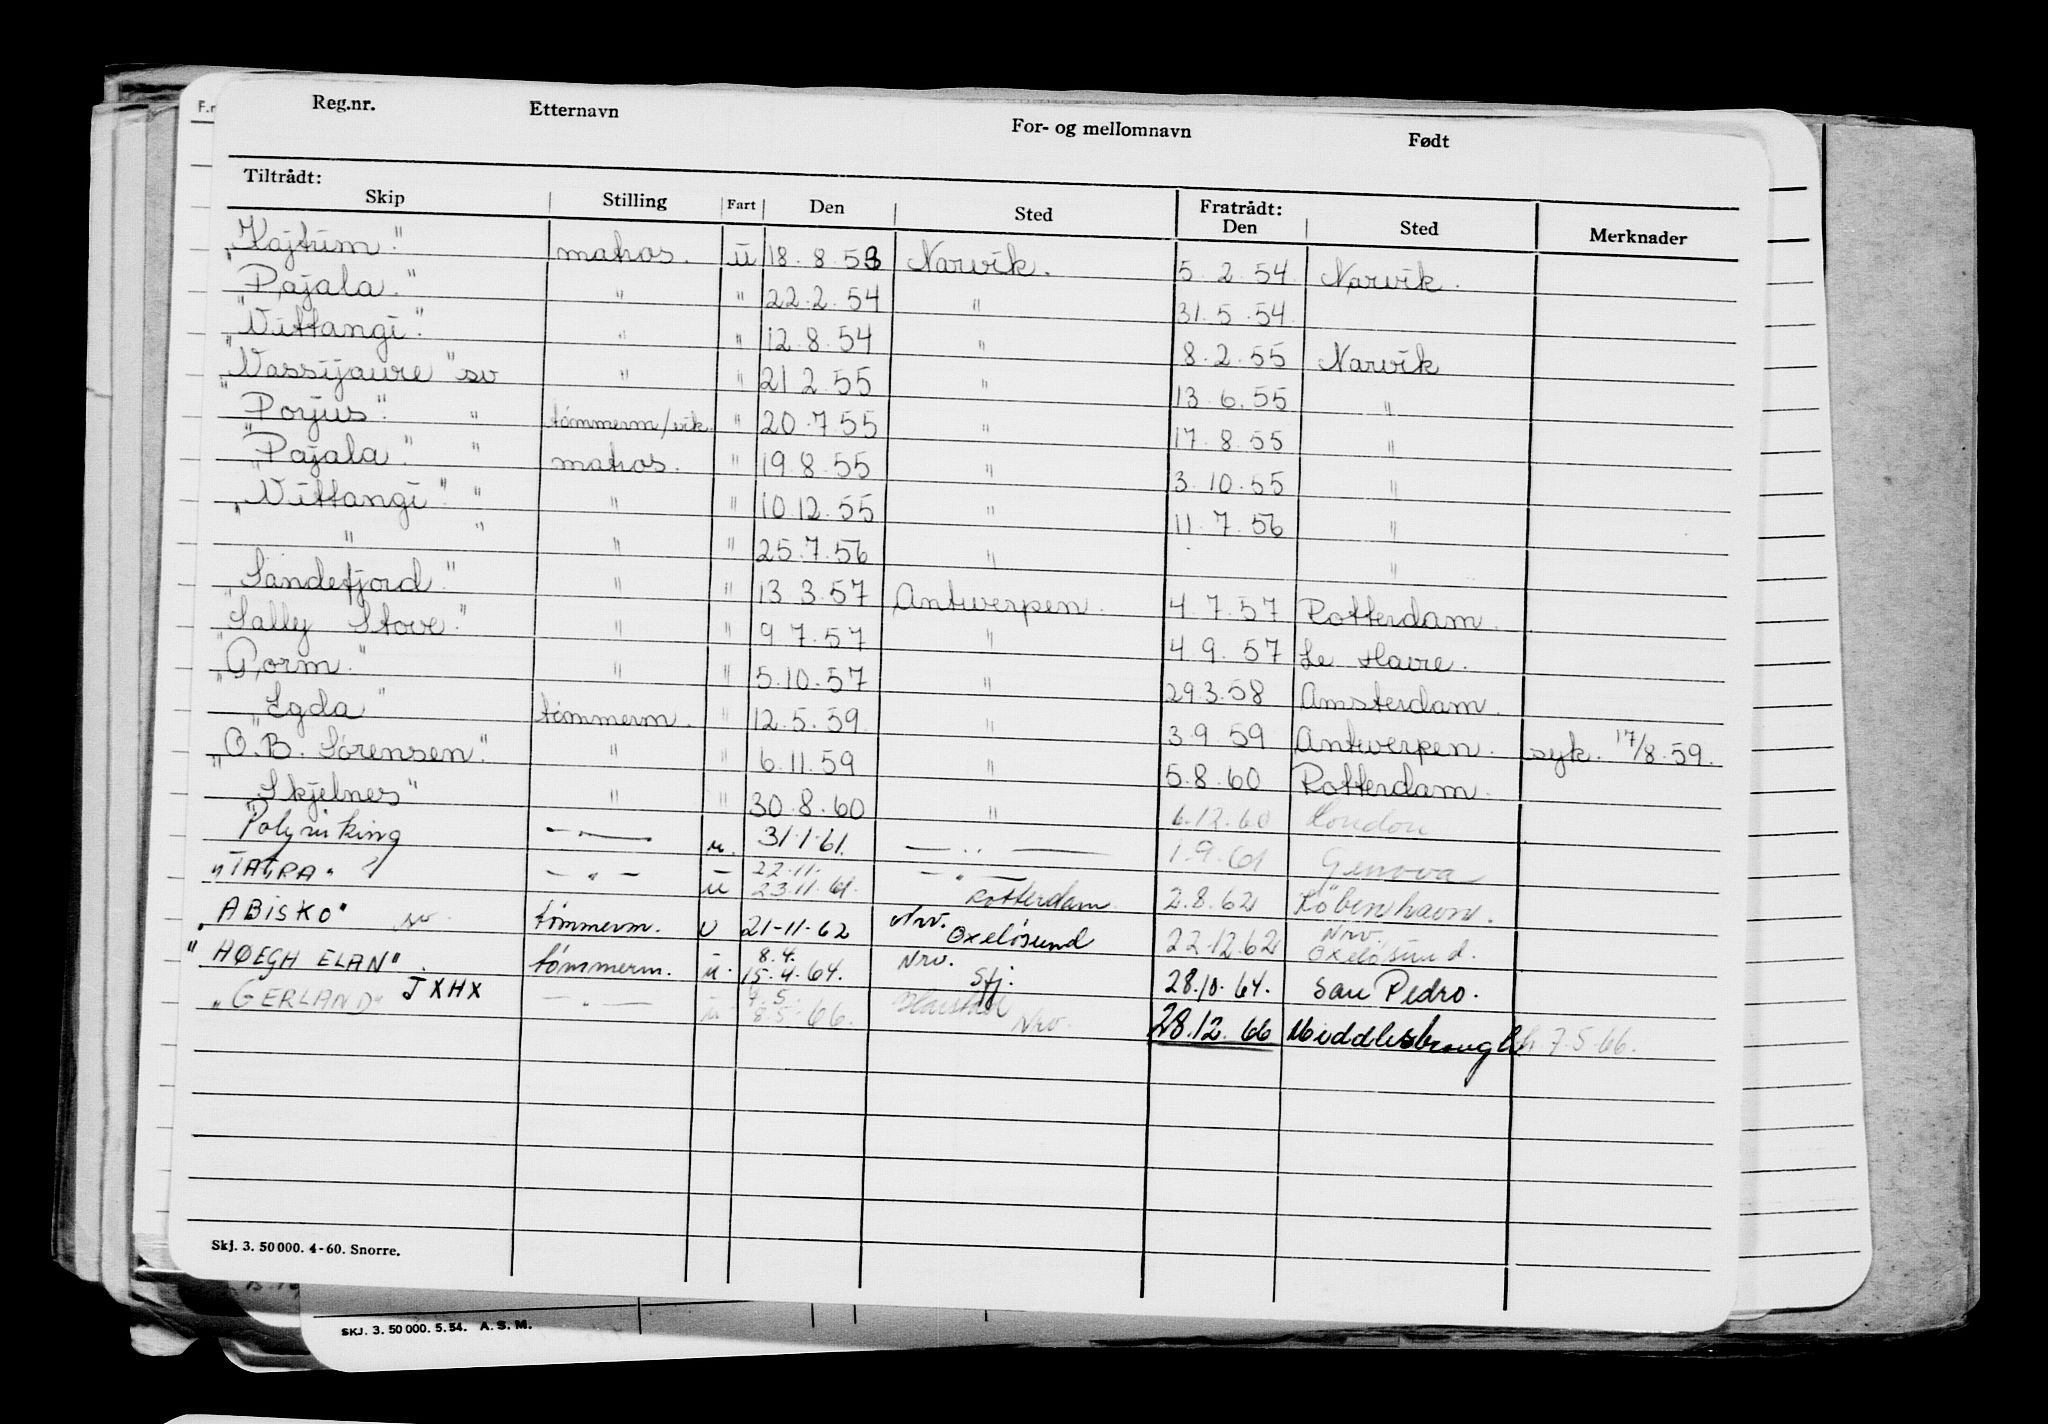 F.n
Reg.nr. Etternavn For- og mellomnavn Født
Tiltrådt: Fratrådt:
Skip Stilling Fart Den Sted Den Sted Merknader
"Kajtum" matros. u 18.8.53 Narvik. 5.2.54 Narvik.
"Pajala" " " 22.2.54 " 31.5.54
"Vittangi" " " 12.8.54 " 8.2.55 Narvik
"Vassijaure" sv " " 21.2.55 " 13.6.55 "
"Porjus" " tømmerm/vik. " 20.7.55 " 17.8.55 "
"Pajala" " matros. " 19.8.55 " 3.10.55 "
"Vittangi" " " " 10.12.55 " 11.7.56 "
" " " " 25.7.56 " "
"Sandefjord" " " 13.3.57 Antwerpen. 4.7.57 Rotterdam.
"Sally Stove" " " 9.7.57 " 4.9.57 Le Havre.
"Gorm" " " 5.10.57 " 29.3.58 Amsterdam.
"Egda" tømmerm. " 12.5.59 " 3.9.59 Antwerpen. syk. 17/8.59.
"O.B. Sørensen" " " 6.11.59 " 5.8.60 Rotterdam.
"Skjelnes" " " 30.8.60 " 6.12.60 London
Polyviking — " — u. 31.1.61. — " — 1.9.61 Genova
"TATRA" — " — u 22.11. 23.11.61. — " — Rotterdam. 2.8.62 København.
"ABISKO" sv. tømmerm. U 21-11-62 Nrv. Oxeløsund 22.12.62 Nrv. Oxeløsund.
"HØEGH ELAN". tømmerm. u. 8.4. 15.4.64. Nrv. Sfj. 28.10.64. San Pedro.
"GERLAND" JXHX — " — u 9.5. 8.5.66. Nrv. 28.12.66 Middlesbrough h. 7.5.66.
Skj. 3. 50 000. 4-60. Snorre.
SKJ. 3. 50 000. 5. 54. A. S. M.